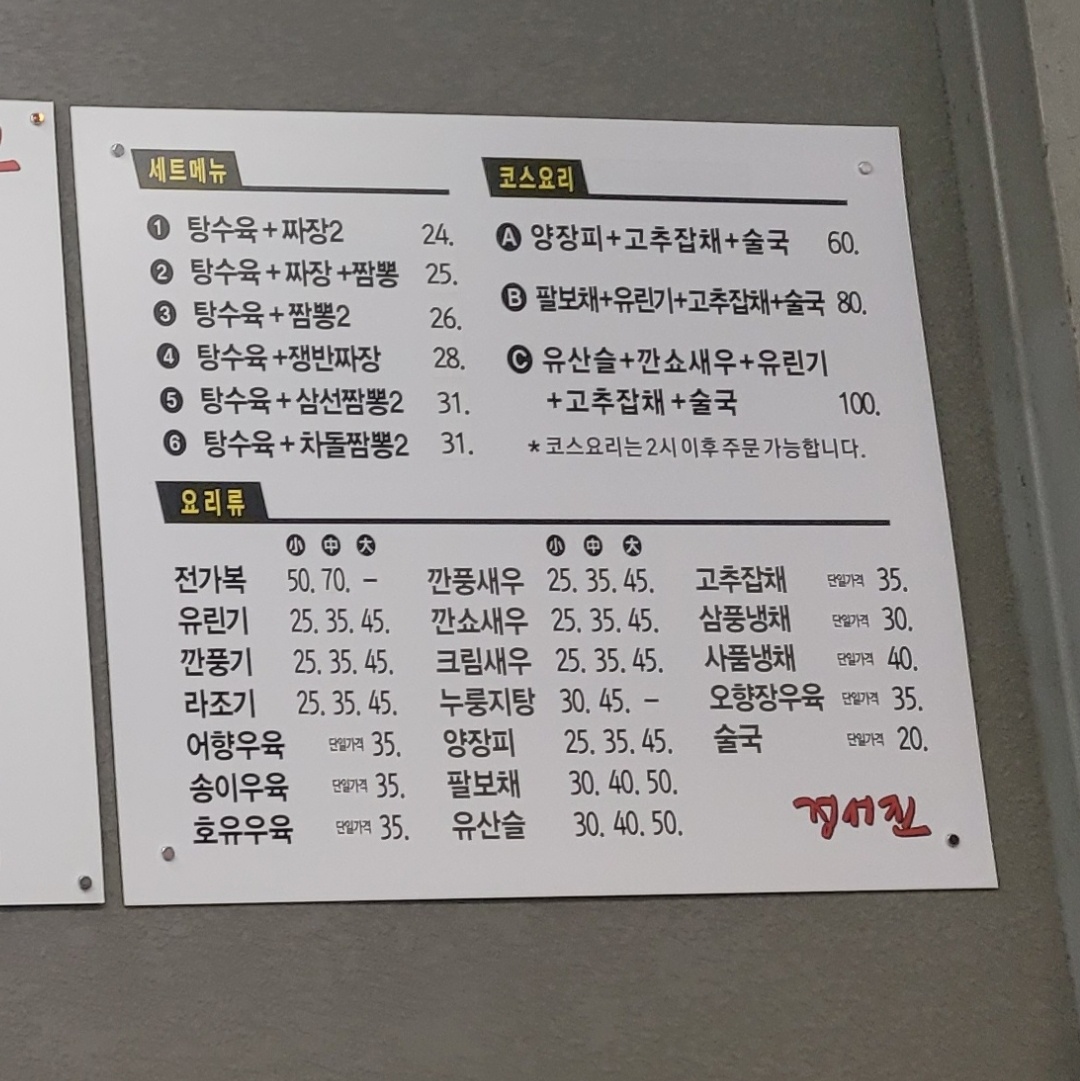 세트메뉴
① 탕수육+짜장2 24.
② 탕수육+짜장+짬뽕 25.
③ 탕수육+짬뽕2 26.
④ 탕수육+쟁반짜장 28.
⑤ 탕수육+삼선짬뽕2 31.
⑥ 탕수육+차돌짬뽕2 31.
코스요리
Ⓐ 양장피+고추잡채+술국 60.
Ⓑ 팔보채+유린기+고추잡채+술국 80.
Ⓒ 유산슬+깐쇼새우+유린기
+고추잡채+술국 100.
*코스요리는 2시 이후 주문 가능합니다.
요리류
小 中 大
전가복 50. 70. –
유린기 25. 35. 45.
깐풍기 25. 35. 45.
라조기 25. 35. 45.
어향우육 단일가격 35.
송이우육 단일가격 35.
호유우육 단일가격 35.
小 中 大
깐풍새우 25. 35. 45.
깐쇼새우 25. 35. 45.
크림새우 25. 35. 45.
누룽지탕 30. 45. –
양장피 25. 35. 45.
팔보채 30. 40. 50.
유산슬 30. 40. 50.
고추잡채 단일가격 35.
삼풍냉채 단일가격 30.
사품냉채 단일가격 40.
오향장우육 단일가격 35.
술국 단일가격 20.